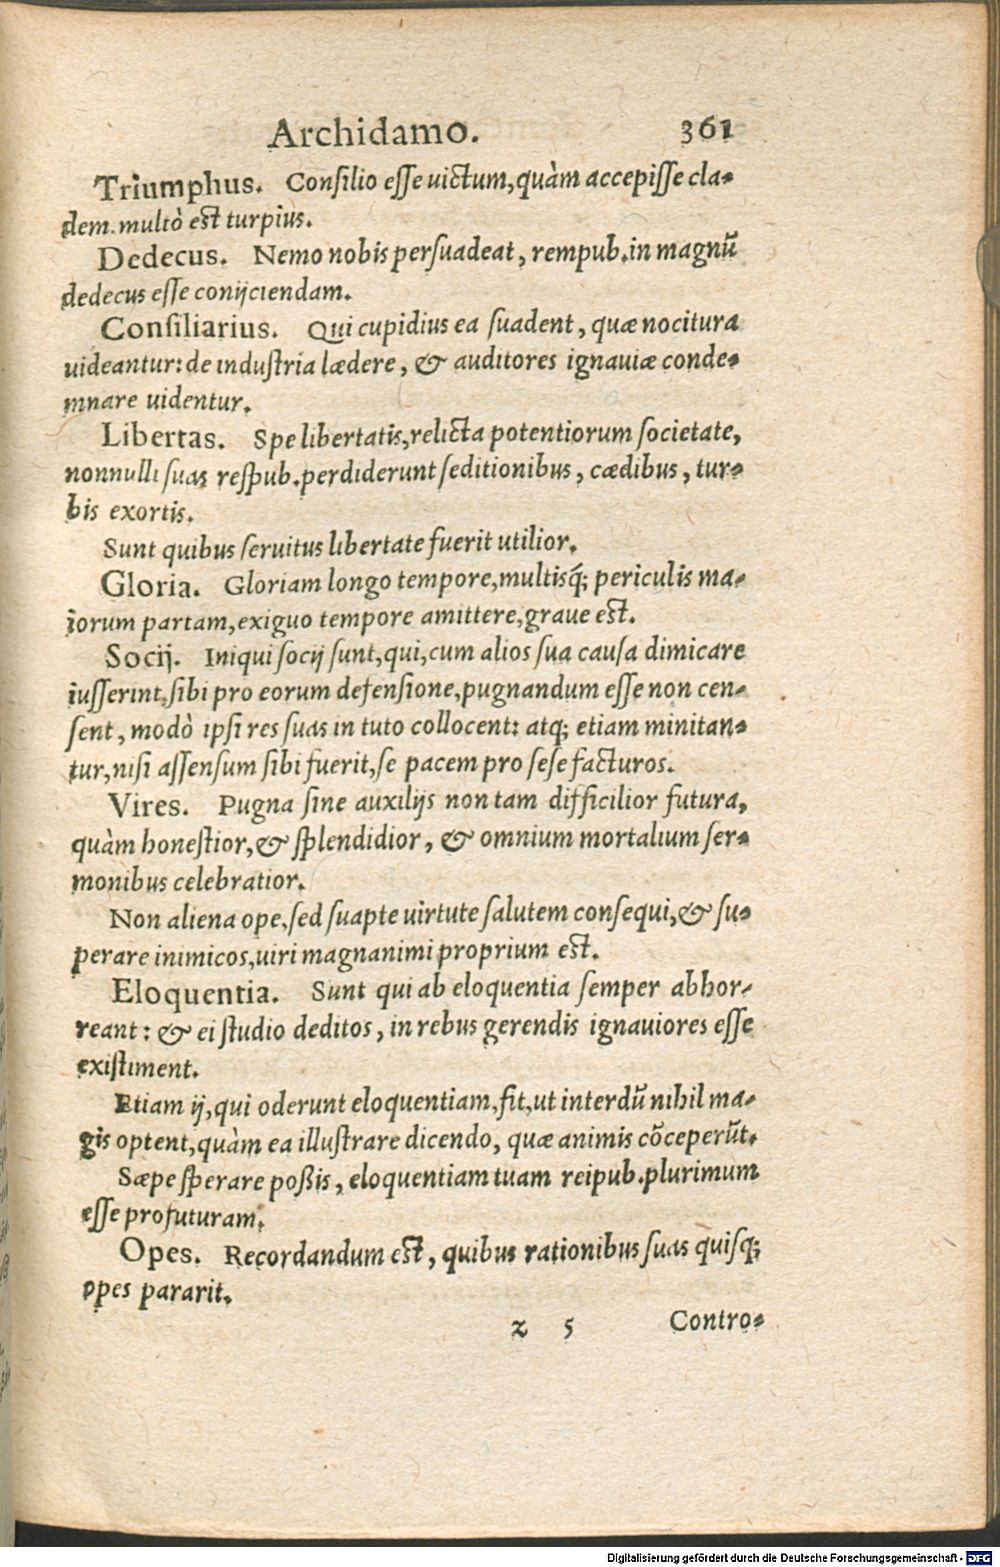 Archidamo. 361
Triumphus. Consilio eſſe uictum, quàm accepiſſe cla-
dem. multò est turpius.
Dedecus. Nemo nobis perſuadeat, rempub. in magnũ
dedecus eſſe conijciendam.
Conſiliarius. Qui cupidius ea ſuadent, quæ nocitura
uideantur: de induſtria lædere, & auditores ignauiæ conde-
mnare uidentur.
Libertas. Spe libertatis, relicta potentiorum ſocietate,
nonnulli ſuas reſpub. perdiderunt ſeditionibus, cædibus, tur-
bis exortis.
Sunt quibus ſeruitus libertate fuerit utilior.
Gloria. Gloriam longo tempore, multisq́; periculis ma-
iorum partam, exiguo tempore amittere, graue est.
Socij. Iniqui ſocij sunt, qui, cum alios sua cauſa dimicare
iuſſerint, ſibi pro eorum defenſione, pugnandum eſſe non cen-
ſent, modò ipſi res ſuas in tuto collocent: atq; etiam minitan-
tur, niſi aſſenſum ſibi fuerit, ſe pacem pro ſeſe facturos.
Vires. Pugna ſine auxilijs non tam difficilior futura,
quàm honeſtior, & ſplendidior, & omnium mortalium ſer-
monibus celebratior.
Non aliena ope, ſed ſuapte uirtute ſalutem conſequi, & ſu-
perare inimicos, uiri magnanimi proprium est.
Eloquentia. Sunt qui ab eloquentia ſemper abhor-
reant: & ei ſtudio deditos, in rebus gerendis ignauiores eſſe
exiſtiment.
Etiam ij, qui oderunt eloquentiam, fit, ut interdũ nihil ma-
gis optent, quàm ea illuſtrare dicendo, quæ animis cõceperũt.
Sæpe ſperare poßis, eloquentiam tuam reipub. plurimum
eſſe profuturam.
Opes. Recordandum est, quibus rationibus ſuas quiſq;
opes pararit.
z 5 Contro-
Digitalisierung gefördert durch die Deutsche Forschungsgemeinschaft - DFG